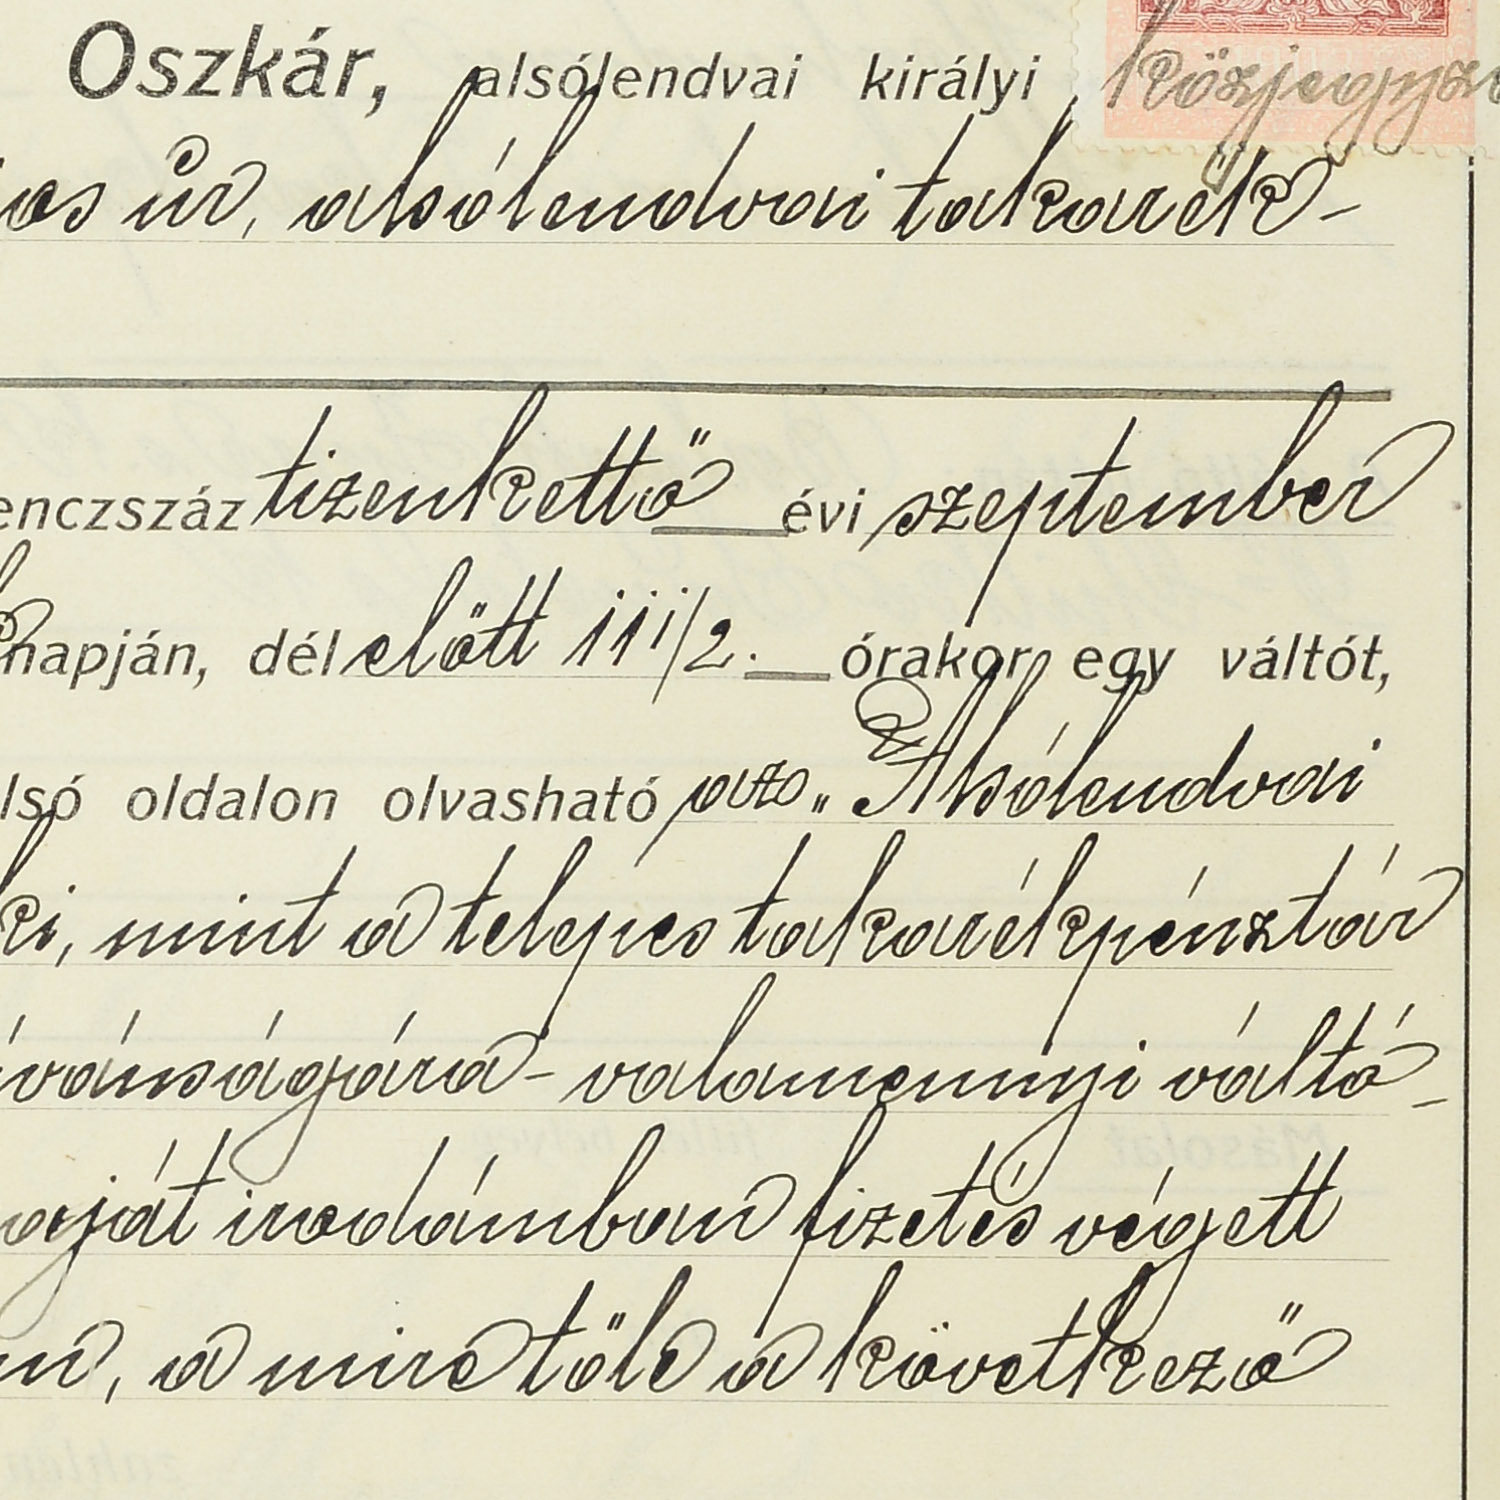 Oszkár, alsólendvai királyi közjegyző
os úr, alsólendvai takarék-
enczszáz tizenkettő évi szeptember
napján, délelőtt 11 1/2. órakor egy váltót,
lső oldalon olvasható az „Alsólendvai
ki, mint a telepes takarékpénztár
ívánságára - valamennyi váltó-
aját irodámban fizetés végett
a mire tőle a következő